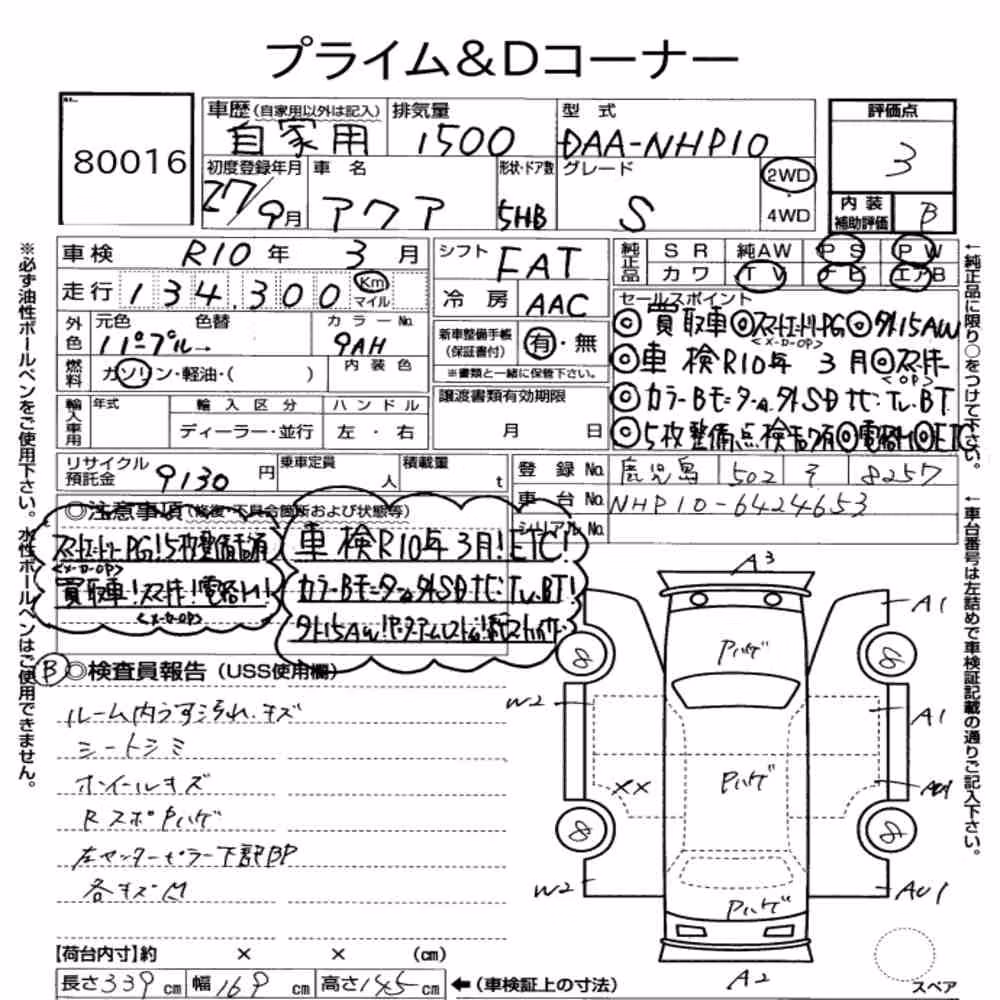 プライム&Dコーナー
80016
車歴(自家用以外は記入) 自家用
排気量 1500
型式 DAA-NHP10
評価点 3
初度登録年月 27/9月
車名 アクア
形状・ドア数 5HB
グレード S
2WD
4WD
内装補助評価 B
車検 R10年 3月
シフト FAT
純正品 SR 純AW PS PW
カワ TV ナビ エアB
走行 134,300 Km マイル
冷房 AAC
セールスポイント
◎買取車◎スマートエントリーPG◎外15AW
<メーカーOP>
◎車検R10年 3月◎スマートキー
<OP>
◎カラーBモニターa.外SDナビ:Tv.BT
◎5枚整備点検記録有◎電格M◎ETC
外色 元色 色替 カラーNo.
11パープル→ 9AH
内装色
新車整備手帳(保証書付) 有・無
※書類と一緒に保管下さい。
燃料 ガソリン・軽油・( )
輸入車用 年式 輸入区分 ハンドル
ディーラー・並行 左・右
譲渡書類有効期限
月 日
リサイクル預託金 9130円
乗車定員 人
積載量 t
登録No. 鹿児島 502 8257
車台No. NHP10-6424653
シリアルNo.
◎注意事項(修復・不具合箇所および状態等)
車検R10年3月!ETC!
買取車!スマートキー!電格M!
カラーBモニターa外SDナビ:Tv.BT!
B ◎検査員報告(USS使用欄)
ルーム内うす汚れ.キズ
シートシミ
ホイールキズ
RスポPハゲ
左センターピラー下部BP
各キズ凹
A3
A1
Pハゲ
8
8
W2
A1
XX
Pハゲ
AU1
8
8
W2
AU1
Pハゲ
A2
スペア
【荷台内寸】約 × × (cm)
長さ339cm 幅169cm 高さ145cm ←(車検証上の寸法)
※必ず油性ボールペンをご使用下さい。水性ボールペンはご使用できません。
←純正品に限り○をつけて下さい。
←車台番号は左詰めで車検証記載の通りご記入下さい。